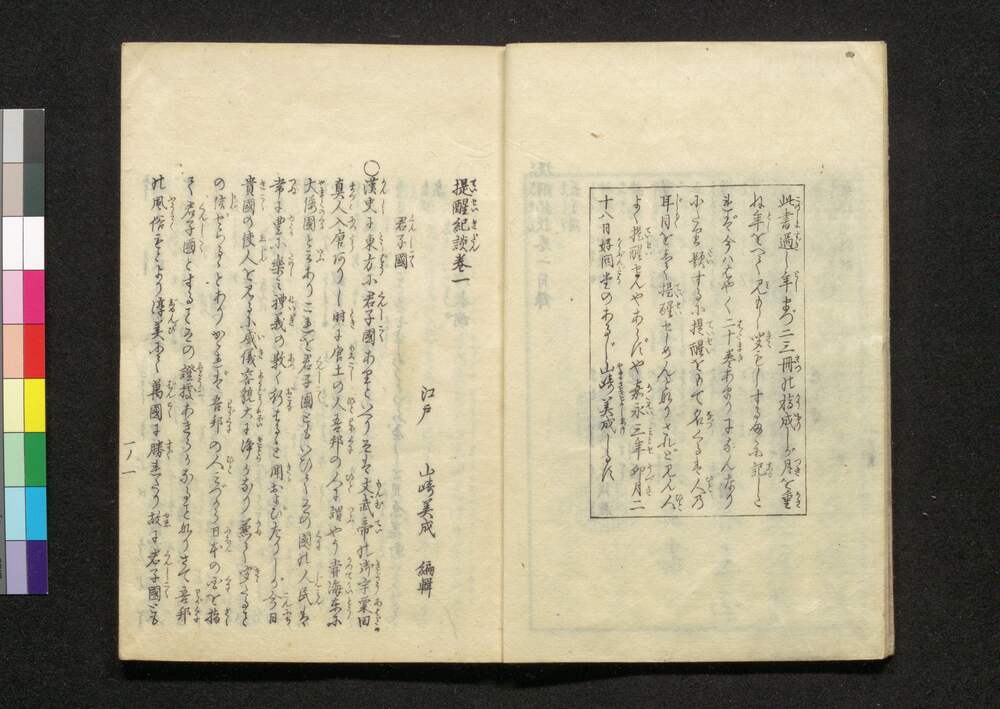 此書過し年まづ二三冊の稿成しが月を重
ね年をへて見もし聞もしする毎に記しと
れば今ははやく二十巻あまりになんなり
にたる題するに提醒をもて名くるは人の
耳目をして提醒せしめんとなりされど見ん人
よく提醒せんやあらずや嘉永三年卯月二
十八日好問堂のあるじ山崎美成しるす
提醒紀談巻一
江戸 山崎美成 編輯
君子國
○漢史に東方に君子國ありといへりそは文武帝の御宇粟田
真人入唐ありし時に唐土の人吾邦の人に謂やう嘗海東に
大倭國とてありこれを君子國ともいひてその國の人民は
常に豊に樂み禮義の敦く行はるると聞およびたりしが今日
貴國の使人を見るに威儀容貌大に浄らなり兼々聞たること
の信ならずやとありかゝれば吾邦の人みづから日本の号を指
て君子國とするはその證拠あきらかなることなりさて吾邦
の風俗もとより淳美にして萬國に勝れたり故に君子國とも
一ノ一